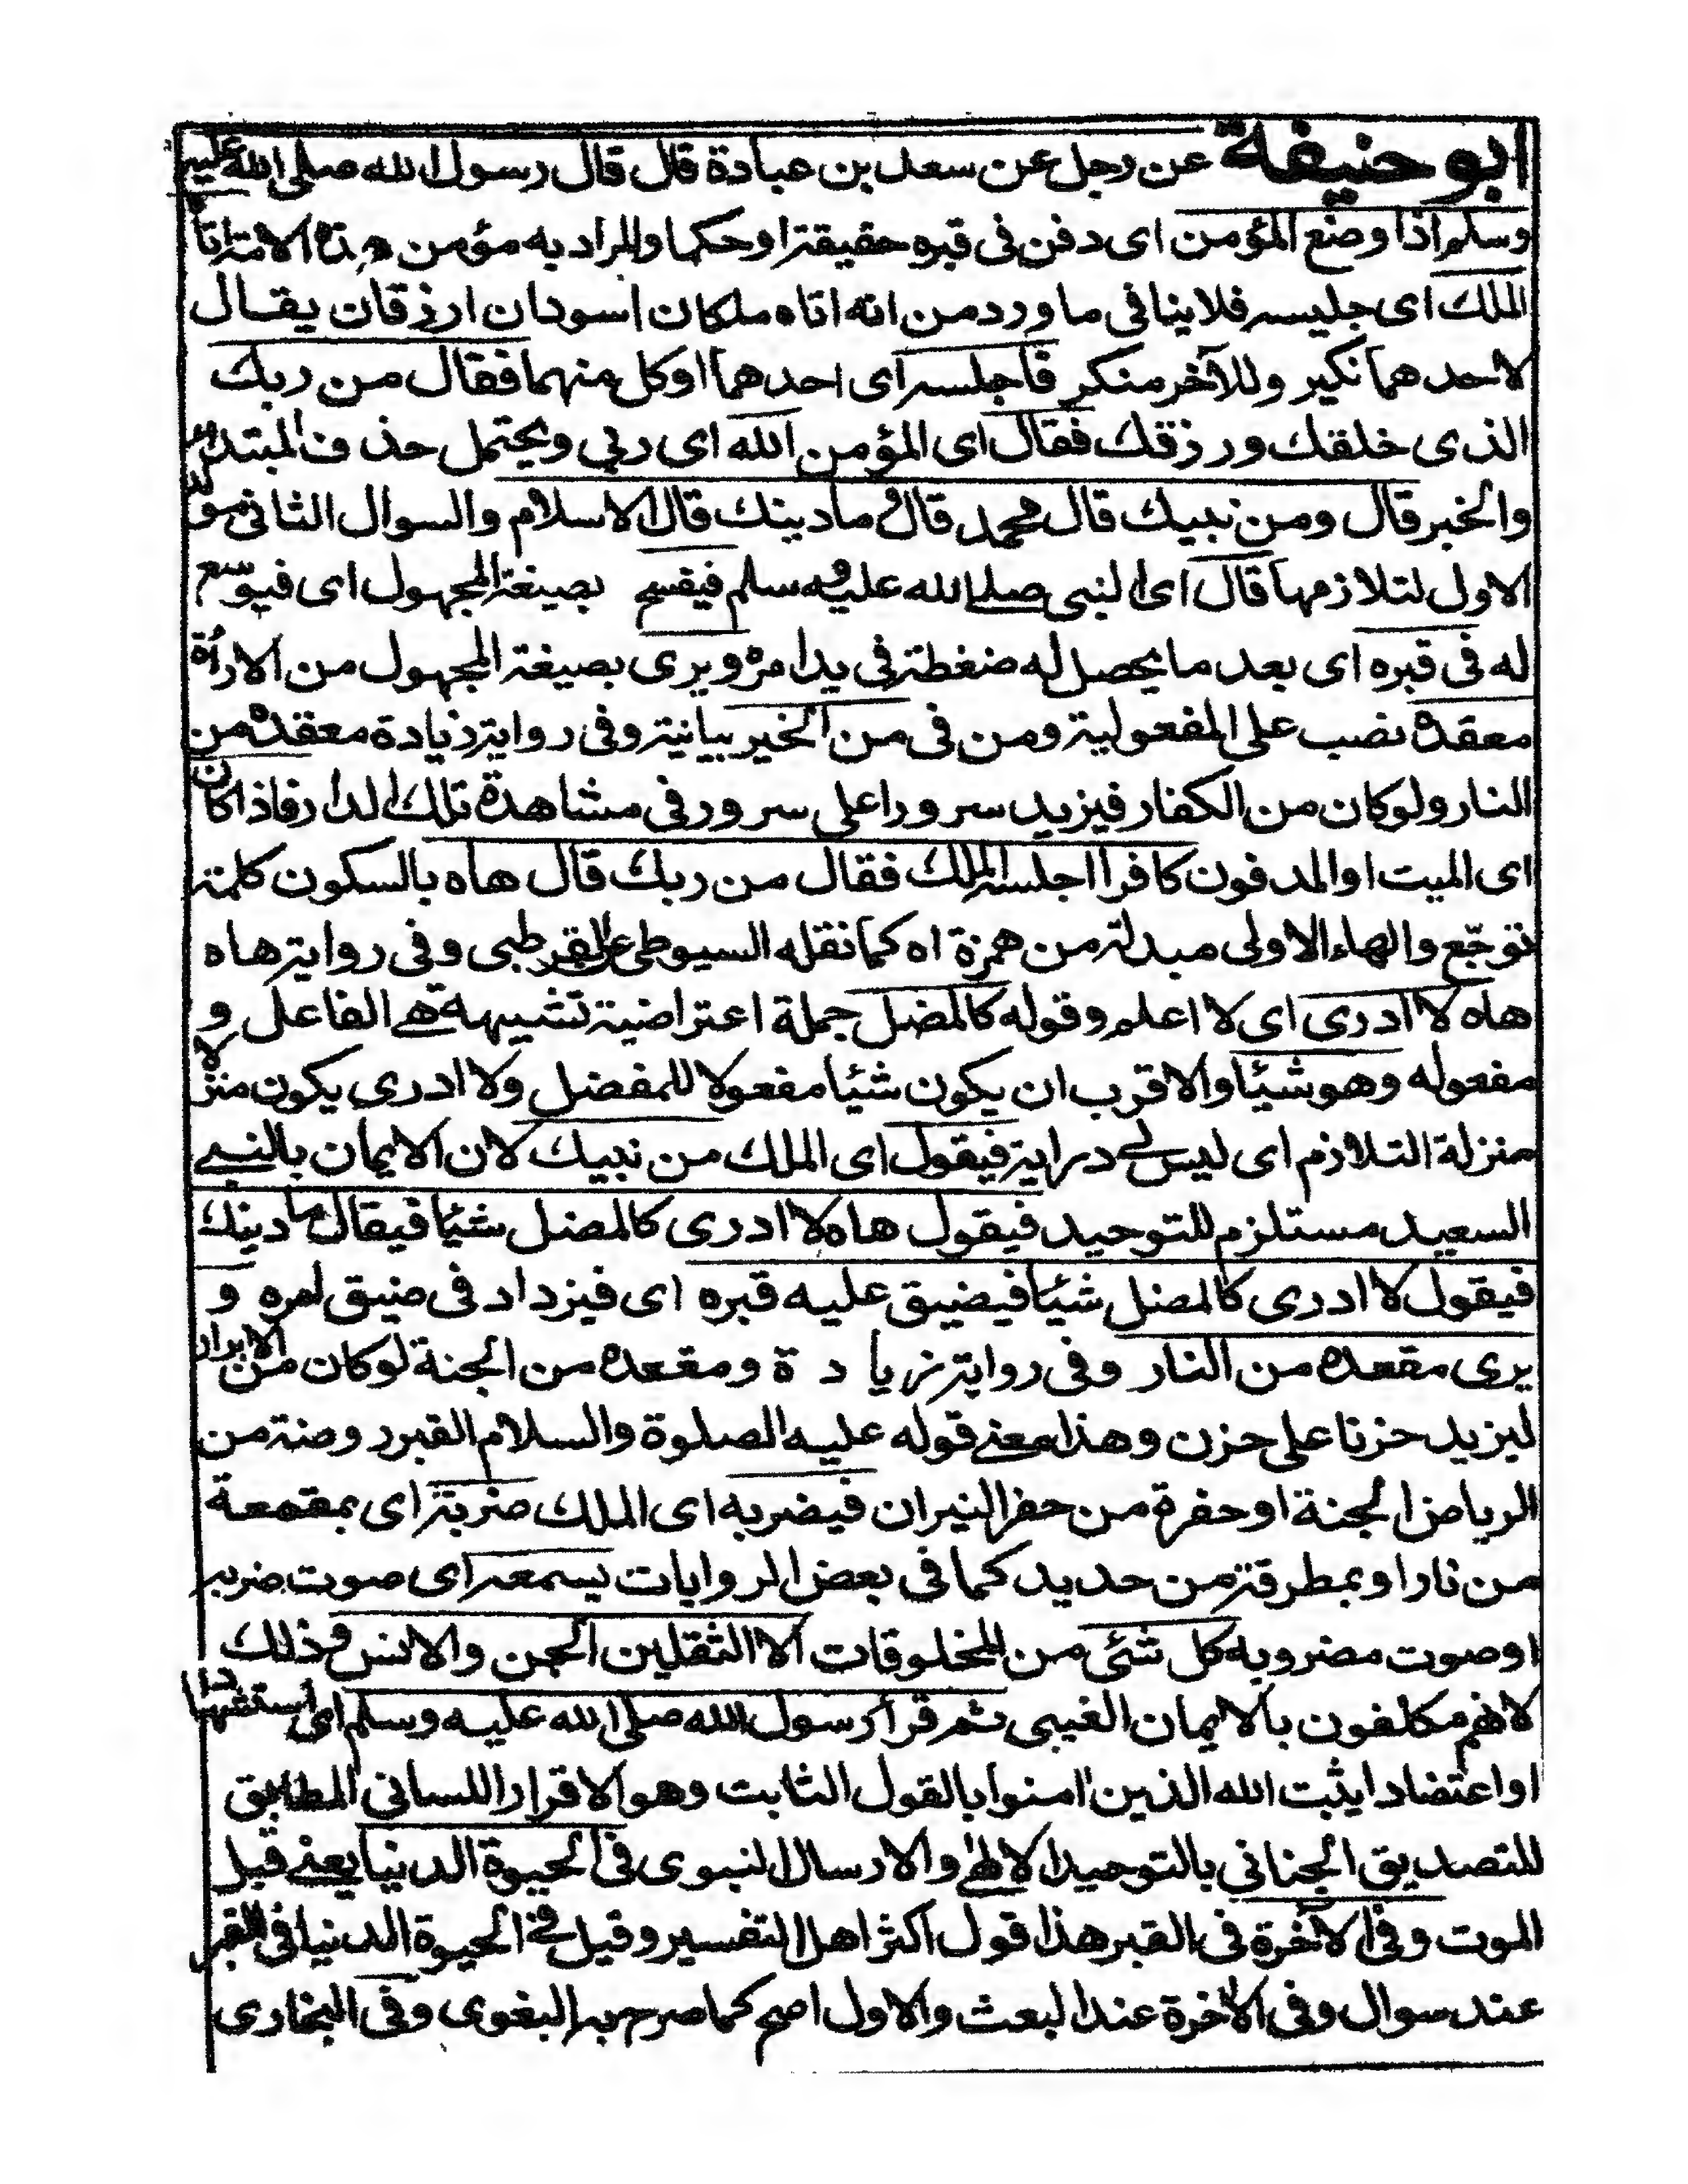 ابو حنيفة عن رجل عن سعد بن عبادة قال قال رسول الله صلى الله عليه
وسلم اذا وضع المؤمن اى دفن فى قبره حقيقة او حكما والمراد به مؤمن هذه الامة اتاه
الملك اى جليسه فلا ينافى ما ورد من انه اتاه ملكان اسودان ارزقان يقال
لاحدهما نكير وللآخر منكر فاجلسه اى احدهما او كل منهما فقال من ربك
الذى خلقك ورزقك فقال اى المؤمن الله اى ربي ويحتمل حذف المبتدا
والخبر قال ومن نبيك قال محمد قال وما دينك قال الاسلام والسوال الثانى
الاول لتلازمها قال اى النبى صلے الله عليه وسلم فيفسح بصيغة المجهول اى فيوسع
له فى قبره اى بعد ما يحصل له ضغطة فى يدا مره ويرى بصيغة المجهول من الاراءة
معقده نصب على المفعولية ومن فى من الخير بيانية وفى رواية زيادة معقده من
النار ولو كان من الكفار فيزيد سرورا على سرور فى مشاهدة تلك الدار فاذا كان
اى الميت او المدفون كافرا اجلسه الملك فقال من ربك قال هاه بالسكون كلمة
توجّع والهاء الاولى مبدلة من همزة اه كما نقله السيوطى عن القرطبى وفى رواية هاه
هاه لا ادرى اى لا اعلم وقوله كالمضل جملة اعتراضية تشبيهة هے الفاعل و
مفعوله وهو شيئا والاقرب ان يكون شئيا مفعولا للمفضل ولا ادرى يكون منزلا
منزلة التلازم اى ليس لے دراية فيقول اى الملك من نبيك لان الايمان بالنبے
السعيد مستلزم للتوحيد فيقول هاه لا ادرى كالمضل شئيا فيقال ما دينك
فيقول لا ادرى كالمضل شئيا فيضيق عليه قبره اى فيزداد فى ضيق امره و
يرى مقعده من النار وفى رواية زيا د ة ومقعده من الجنة لو كان من الابرار
ليزيد حزنا على حزن وهذا معنے قوله عليه الصلوة والسلام القبر روضة من
الرياض الجنة او حفرة من حفر النيران فيضربه اى الملك ضربة اى بمقمعة
من نار او بمطرقة من حديد كما فى بعض الروايات يسمعه اى صوت ضربه
او صوت مضروبه كل شئى من المخلوقات الا الثقلين الجن والانس وذلك
لانهم مكلفون بالايمان الغيبى ثم قرأ رسول الله صلى الله عليه وسلم اى استشهادا
او اعتضادا يثبت الله الذين امنوا بالقول الثابت وهو الاقرار اللسانى المطابق
للتصديق الجنانى بالتوحيد الالهے والارسال النبوى فى الحيوة الدنيا يعنے قبل
الموت وفى الآخرة فى القبر هذا قول اكثر اهل التفسير وقيل فے الحيوة الدنيا فى القبر
عند سوال وفى الاخرة عند البعث والاول اصح كما صرح به البغوى وفى البخارى